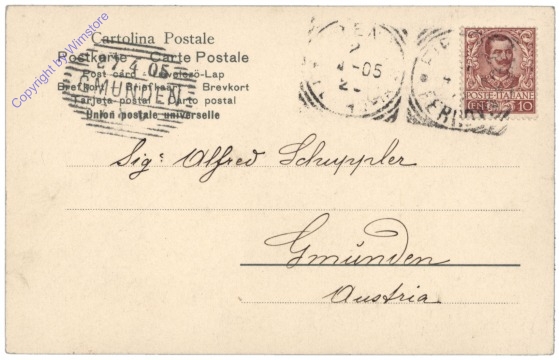 Cartolina Postale
Postkarte Carte Postale
Post card Levelező-Lap
Brefkort Briefkaart Brevkort
Tarjeta postal Karto postal
Union postale universelle
27.4.05
GMUNDEN
-05
POSTE ITALIANE
CENT. 10
Sigr Alfred Schuppler
Gmünden
Austria.
Copyright by Wimstore